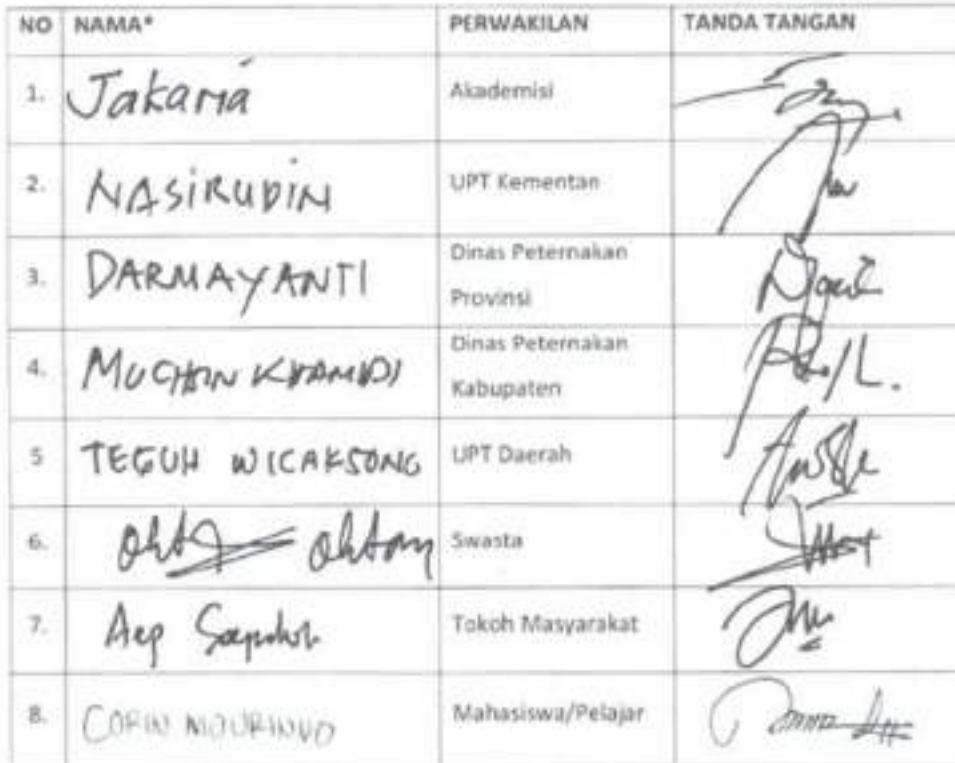 NO NAMA* PERWAKILAN TANDA TANGAN
1. Jakaria Akademisi
2. NASIRUDIN UPT Kementan
3. DARMAYANTI Dinas Peternakan
Provinsi
4. Dinas Peternakan
Kabupaten
5 TEGUH WICAKSONO UPT Daerah
6. Swasta
7. Aep Tokoh Masyarakat
8. MOURINHO Mahasiswa/Pelajar